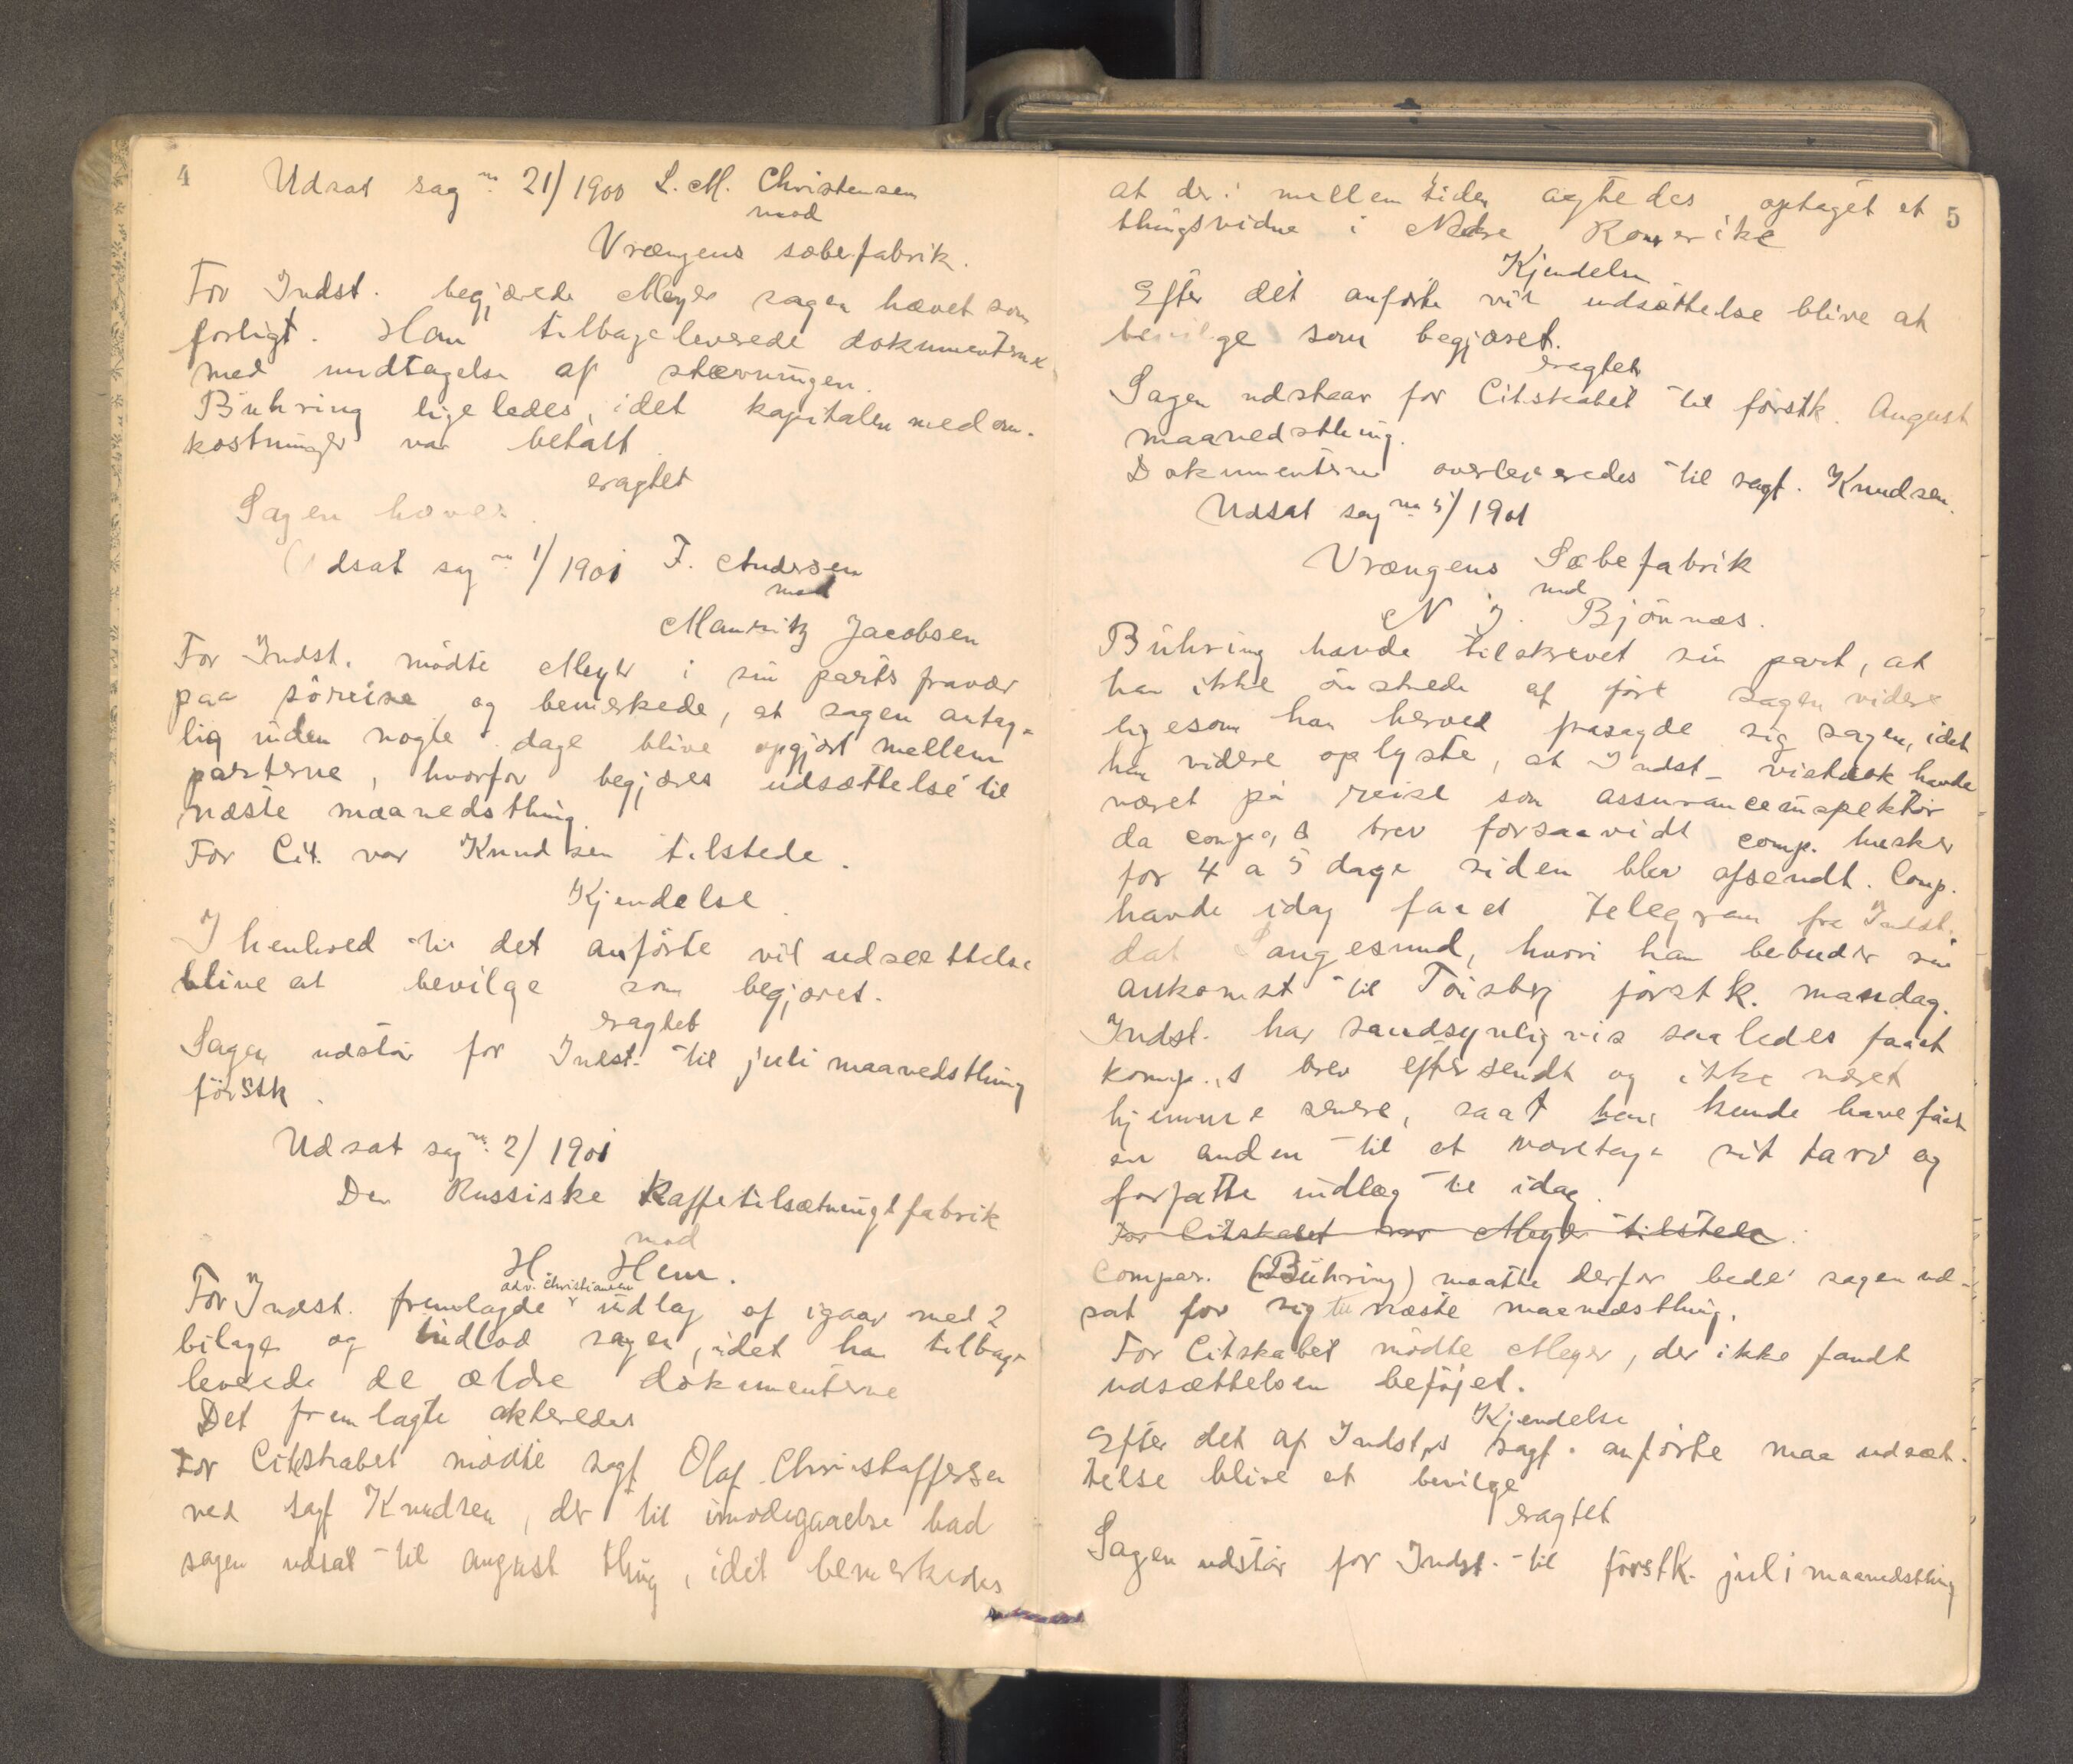 4
Udsat sag no 21/1900 L. M. Christensen
mod
Vrængens sæbefabrik.
For Indst. begjærede Meyer sagen hævet som
forligt. Han tilbageleverede dokumenterne
med undtagelse af stævningen.
Bühring ligeledes, idet kapitalen med om-
kostninger var betalt
eragtet
Sagen hæves.
Udsat sag no 1/1901 F. Andersen
mod
Mauritz Jacobsen
For Indst. mödte Meyer i sin parts fravær
paa söreise og bemerkede, at sagen antag-
lig inden nogle dage blive opgjort mellem
parterne, hvorfor begjæres udsættelse til
næste maanedsthing.
For Cit. var Knudsen tilstede.
Kjendelse
I henhold til det anförte vil udsættelse
blive at bevilge som begjæret.
eragtet
Sagen udstår for Indst. til juli maanedsthing
förstk.
Udsat sag no 2/1901
Den Russiske Kaffetilsætningsfabrik
mod
H. Hem.
adv. Christiansen
For Indst. fremlagde indlæg af igaar med 2
bilage og indlod sagen, idet han tilbage
leverede de ældre dokumenterne
Det fremlagte akteredes
For Citskabet mödte sagf Olaf Christoffersen
ved sagf Knudsen, der til imodegaaelse bad
sagen udsat til august thing, idet bemerkedes
5
at der i mellemtiden agtedes optaget et
thingsvidne i Nedre Romerike
Kjendelse
Efter det anförte vil udsættelse blive at
bevilge som begjæret.
eragtet
Sagen udstaar for Citskabet til förstk. August
maanedsthing.
Dokumenterne overleveredes til sagf. Knudsen.
Udsat sag no 5/1901
Vrængens Sæbefabrik
mod
N J. Bjönnæs.
Bühring havde tilskrevet sin part, at
han ikke önskede at före sagen videre
ligesom han herved frasagde sig sagen, idet
han videre oplyste, at Indst. vistnok havde
været på reise som assuranceinspektör
da comp.s brev forsaavidt comp. husker
for 4 a 5 dage siden blev afsendt. Comp.
havde idag faaet telegram fra Indst.
dat Langesund, hvori han bebuder sin
ankomst til Tönsberg förstk. mandag.
Indst. har sandsynligvis saaledes faaet
komp.s brev eftersendt og ikke været
hjemme senere, saat han kunde have fået
en anden til at varetage sit tarv og
forfatte indlæg til idag.
For Citskabet var Meyer tilstede.
Compar. (Bühring) maatte derfor bede sagen ud-
sat for sig til næste maanedsthing.
For Citskabet mödte Meyer, der ikke fandt
udsættelsen beföjet.
Kjendelse
Efter det af Indst.s sagf. anförte maa udsæt-
telse blive at bevilge
eragtet
Sagen udstår for Indst. til förstk. juli maanedsthing